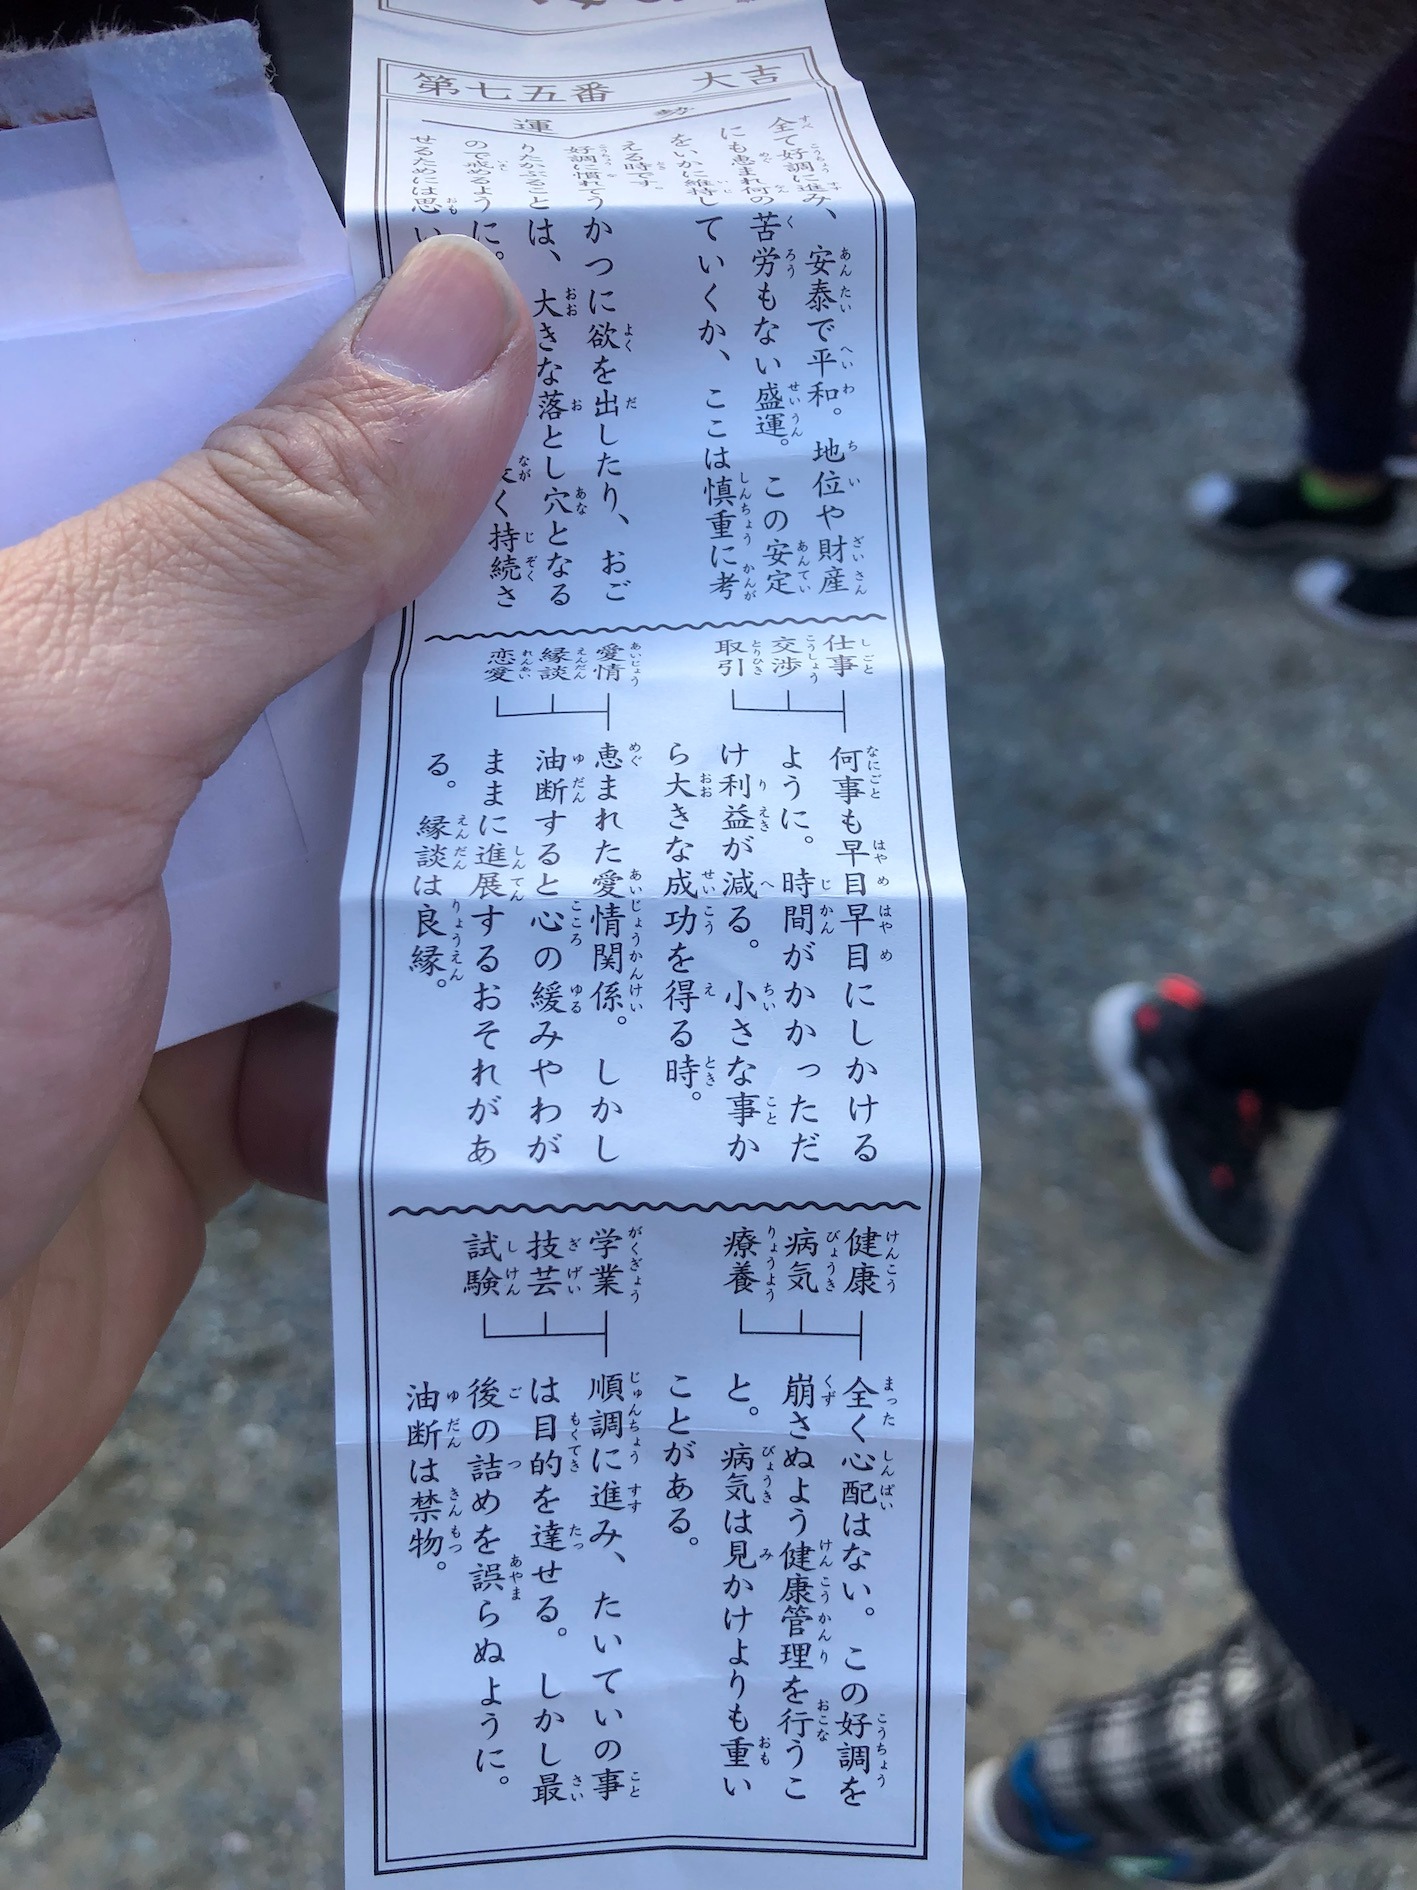 第七五番 大吉
運勢
全て好調に進み、安泰で平和。地位や財産
にも恵まれ何の苦労もない盛運。この安定
をいかに維持していくか、ここは慎重に考
える時です。
好調に慣れてうかつに欲を出したり、おご
りたかぶることは、大きな落とし穴となる
ので戒めるように。く持続さ
せるためには思い
仕事
交渉
取引
何事も早目早目にしかける
ように。時間がかかっただ
け利益が減る。小さな事か
ら大きな成功を得る時。
愛情
縁談
恋愛
恵まれた愛情関係。しかし
油断すると心の緩みやわが
ままに進展するおそれがあ
る。縁談は良縁。
健康
病気
療養
全く心配はない。この好調を
崩さぬよう健康管理を行うこ
と。病気は見かけよりも重い
ことがある。
学業
技芸
試験
順調に進み、たいていの事
は目的を達せる。しかし最
後の詰めを誤らぬように。
油断は禁物。